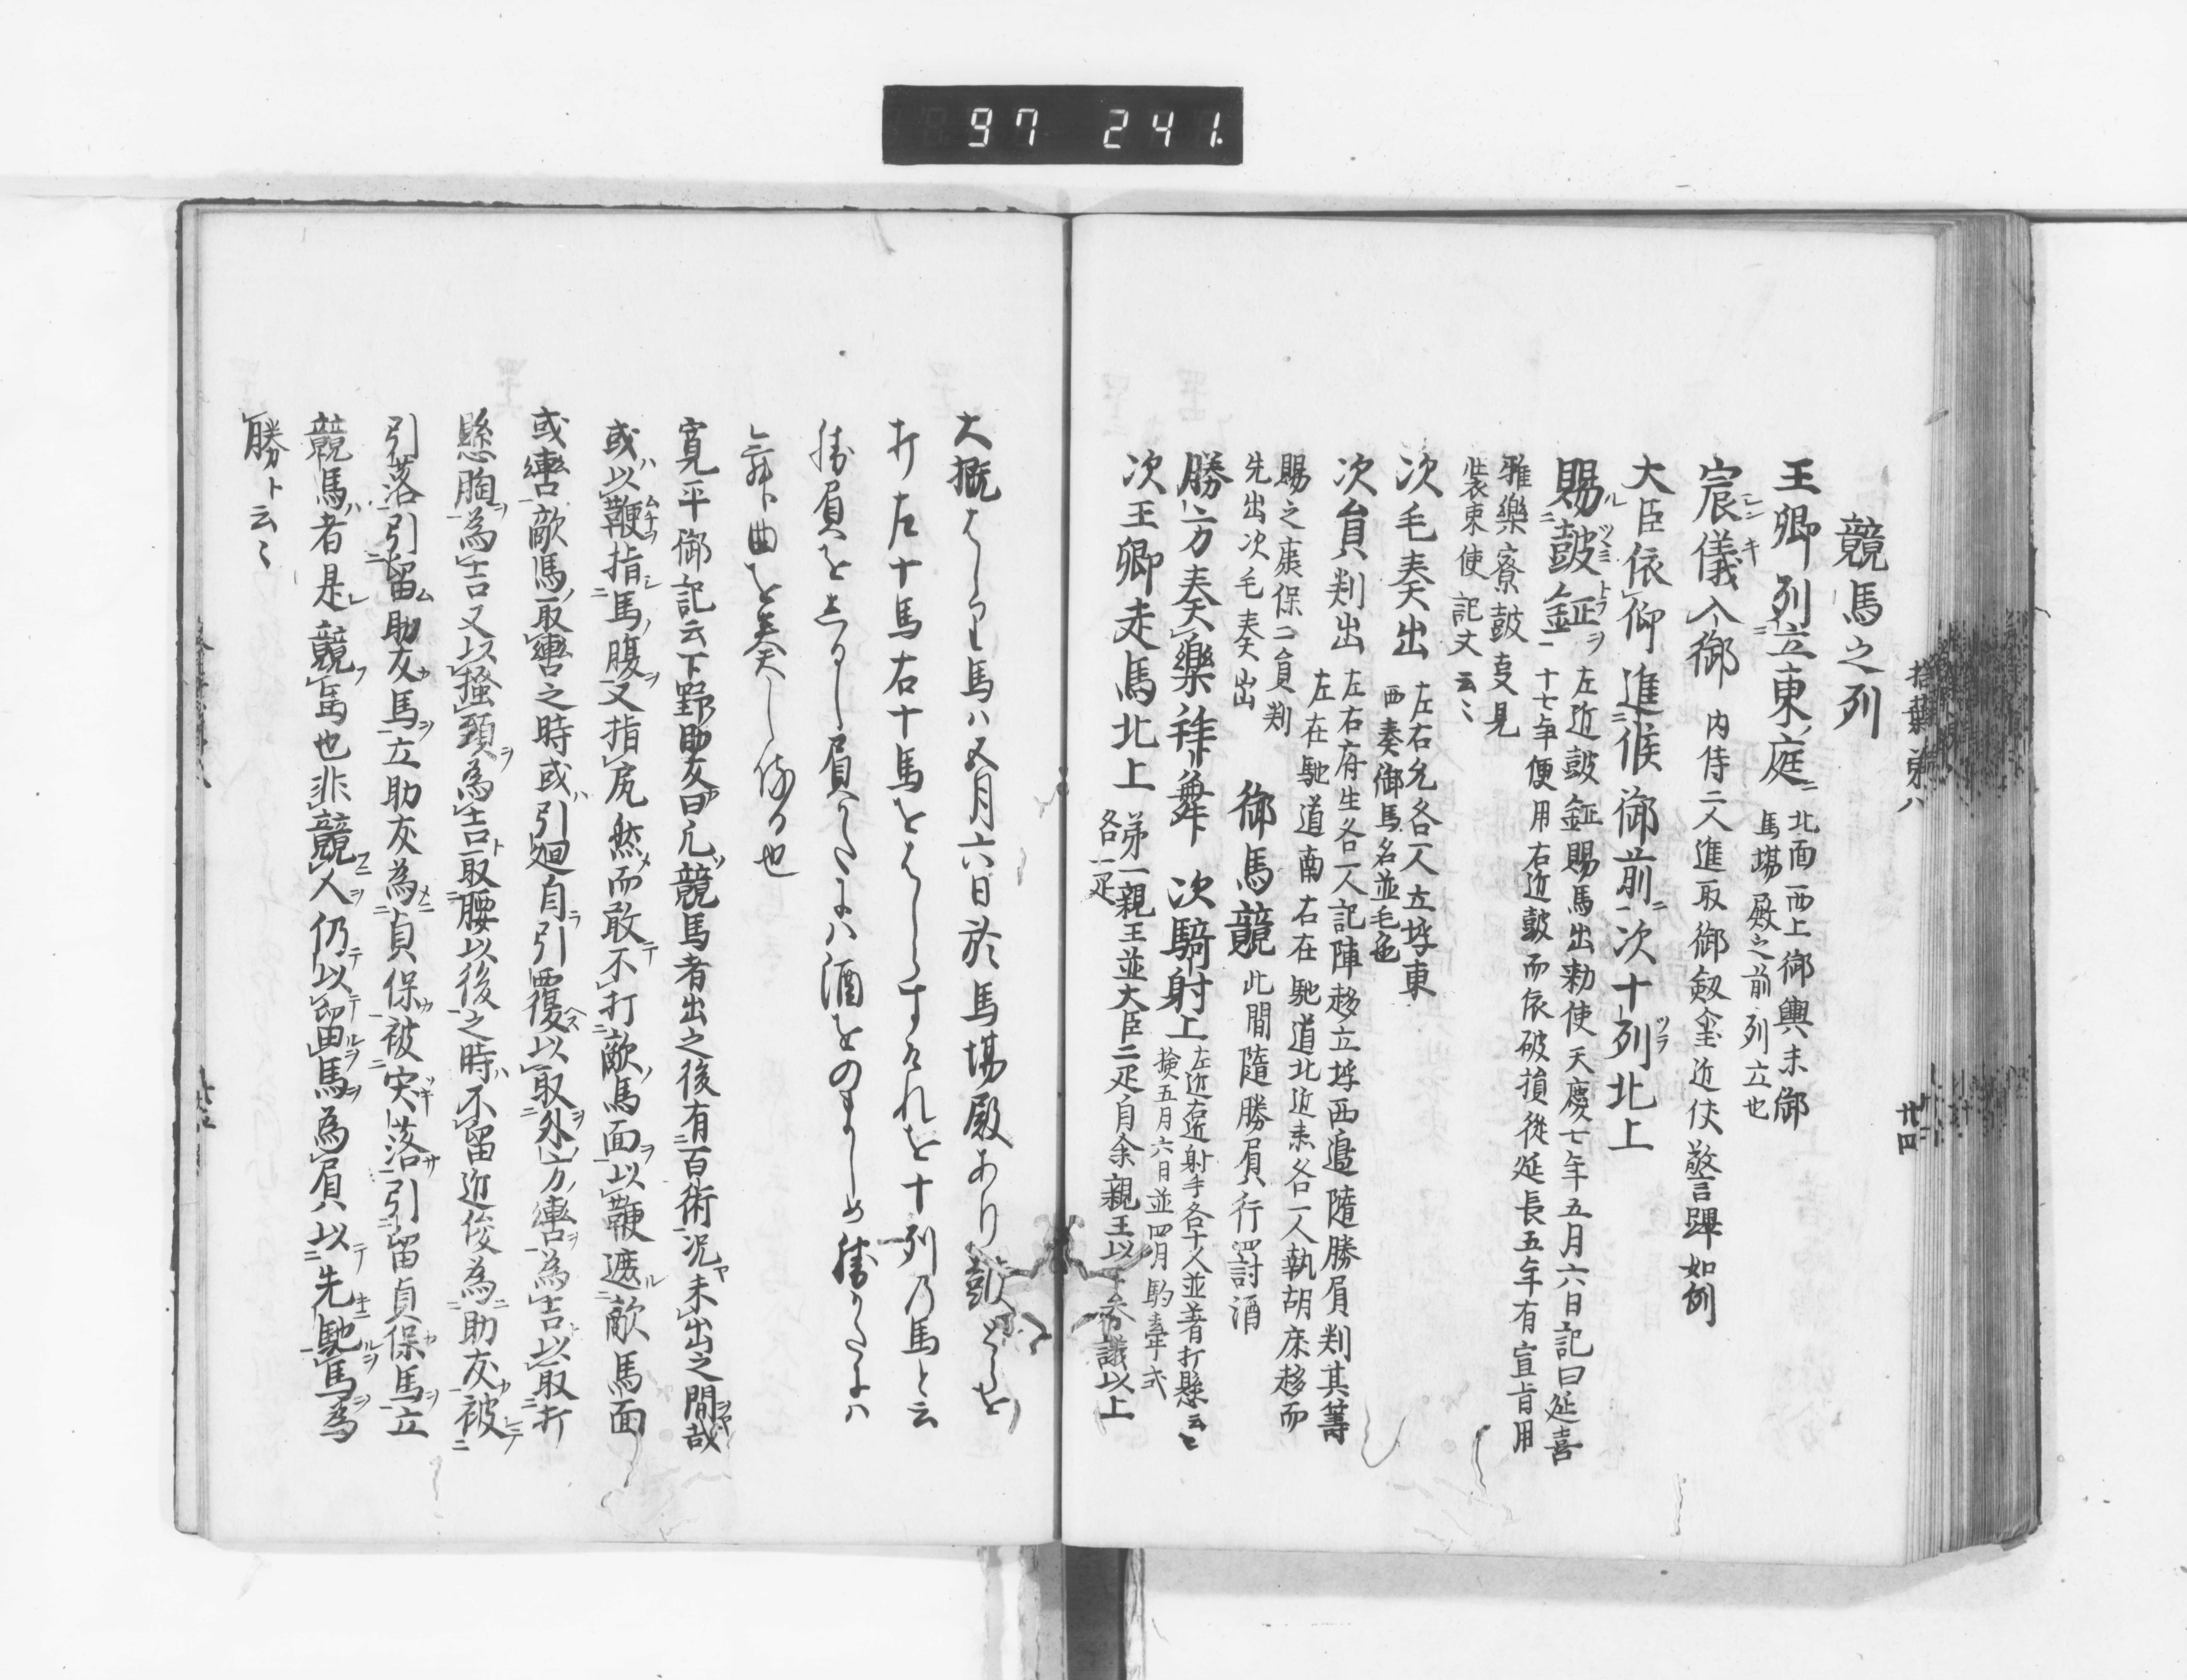 97 241.
拾葉第八
廿四
競馬之列
王卿列立東庭 北面西上御輿未御
馬場殿之前列立也
宸儀入御 内侍二人進取御剱璽近伏警蹕如例
大臣依仰進候御前次十列北上
賜鼓鉦 左近鼓鉦賜馬出勅使天慶七年五月六日記曰延喜
十七年便用右近鼓而依破損従延長五年有宣旨用
雅樂寮鼓
装束使記文云〻
次毛奏出 左右允各一人立埒東
西奏御馬名並毛色
次負判出 左右府生各一人記陣移立埒西邉随勝屓判其籌
左在馳道南右在馳道北近来各一人執胡床移而
先出次毛奏出
御馬競 此間随勝屓行罰酒
勝方奏樂 次騎射上 左近右近射手各十人並著打懸云〻
五月六日並四月駒牽式
次王卿走馬北上 第一親王並大臣二疋自余親王以下参議以上
各一疋
大概はしり馬ハ五月六日於馬場殿あり
打左十馬右十馬をはしらすこれを十列乃馬と云
勝屓をしるし屓かたにハ酒をのましめ勝かたにハ
舞曲を奏し侍る也
寛平御記云下野助友曰凡競馬者出之後有百術况未出之間哉
或以鞭指馬腹又指尻然而敢不打敵馬面以鞭遮敵馬面
或轡敵馬取轡之時或引廻自引覆以取外方轡為吉以取打
懸胸為吉又以掻頚為吉取腰以後之時不留近俊為助友被
引落引留助友馬立助友為貞保被突落引留貞保馬立
競馬者是競馬也非競人仍以留馬為屓以先馳馬為
勝ト云〻